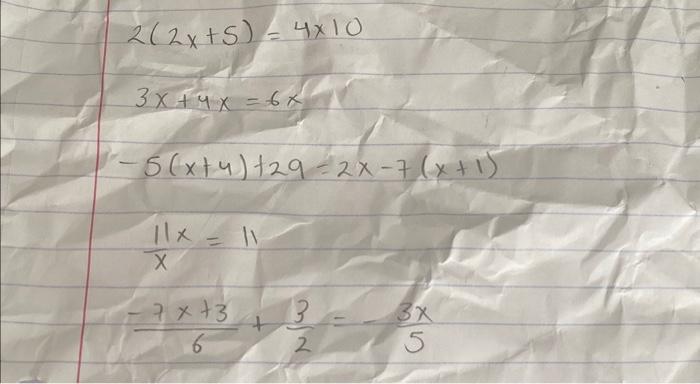 2(2x+5) = 4x10
3x+4x = 6x
-5(x+4)+29 = 2x-7(x+1)
11x/x = 11
-7x+3/6 + 3/2 = -3x/5